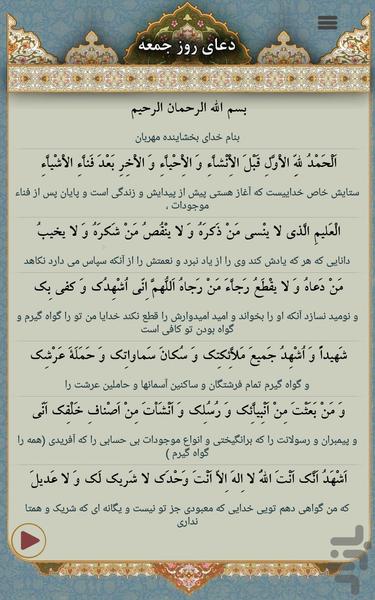 دعای روز جمعه
بسم الله الرحمان الرحیم
بنام خدای بخشاینده مهربان
اَلْحَمْدُ لِلّهِ الاَْوَّلِ قَبْلَ الاِْنْشآءِ وَ الاِْحْیآءِ وَ الاْخِرِ بَعْدَ فَنآءِ الاَْشْیآءِ
ستایش خاص خداییست که آغاز هستی پیش از پیدایش و زندگی است و پایان پس از فناء
موجودات ،
الْعَلیمِ الَّذی لا یَنْسی مَنْ ذَکَرَهُ وَ لا یَنْقُصُ مَنْ شَکَرَهُ وَ لا یَخیبُ
دانایی که هر که یادش کند وی را از یاد نبرد و نعمتش را از آنکه سپاس می دارد نکاهد
مَنْ دَعاهُ وَ لا یَقْطَعُ رَجآءَ مَنْ رَجاهُ اَللّهُمَّ اِنّی اُشْهِدُکَ وَ کَفی بِکَ
و نومید نسازد آنکه او را بخواند و امید امیدوارش را قطع نکند خدایا من تو را گواه گیرم و
گواه بودن تو کافی است
شَهیداً وَ اُشْهِدُ جَمیعَ مَلاَّئِکَتِکَ وَ سُکّانَ سَماواتِکَ وَ حَمَلَةَ عَرْشِکَ
و گواه گیرم تمام فرشتگان و ساکنین آسمانها و حاملین عرشت را
وَ مَنْ بَعَثْتَ مِنْ اَنْبِیآئِکَ وَ رُسُلِکَ وَ اَنْشَاْتَ مِنْ اَصْنافِ خَلْقِکَ اَنّی
و پیمبران و رسولانت را که برانگیختی و انواع موجودات بی حسابی را که آفریدی (همه را
گواه گیرم )
اَشْهَدُ اَنَّکَ اَنْتَ اللّهُ لا اِلهَ اِلاّ اَنْتَ وَحْدَکَ لا شَریکَ لَکَ وَ لا عَدیلَ
که من گواهی دهم تویی خدایی که معبودی جز تو نیست و یگانه ای که شریک و همتا
نداری
بازار